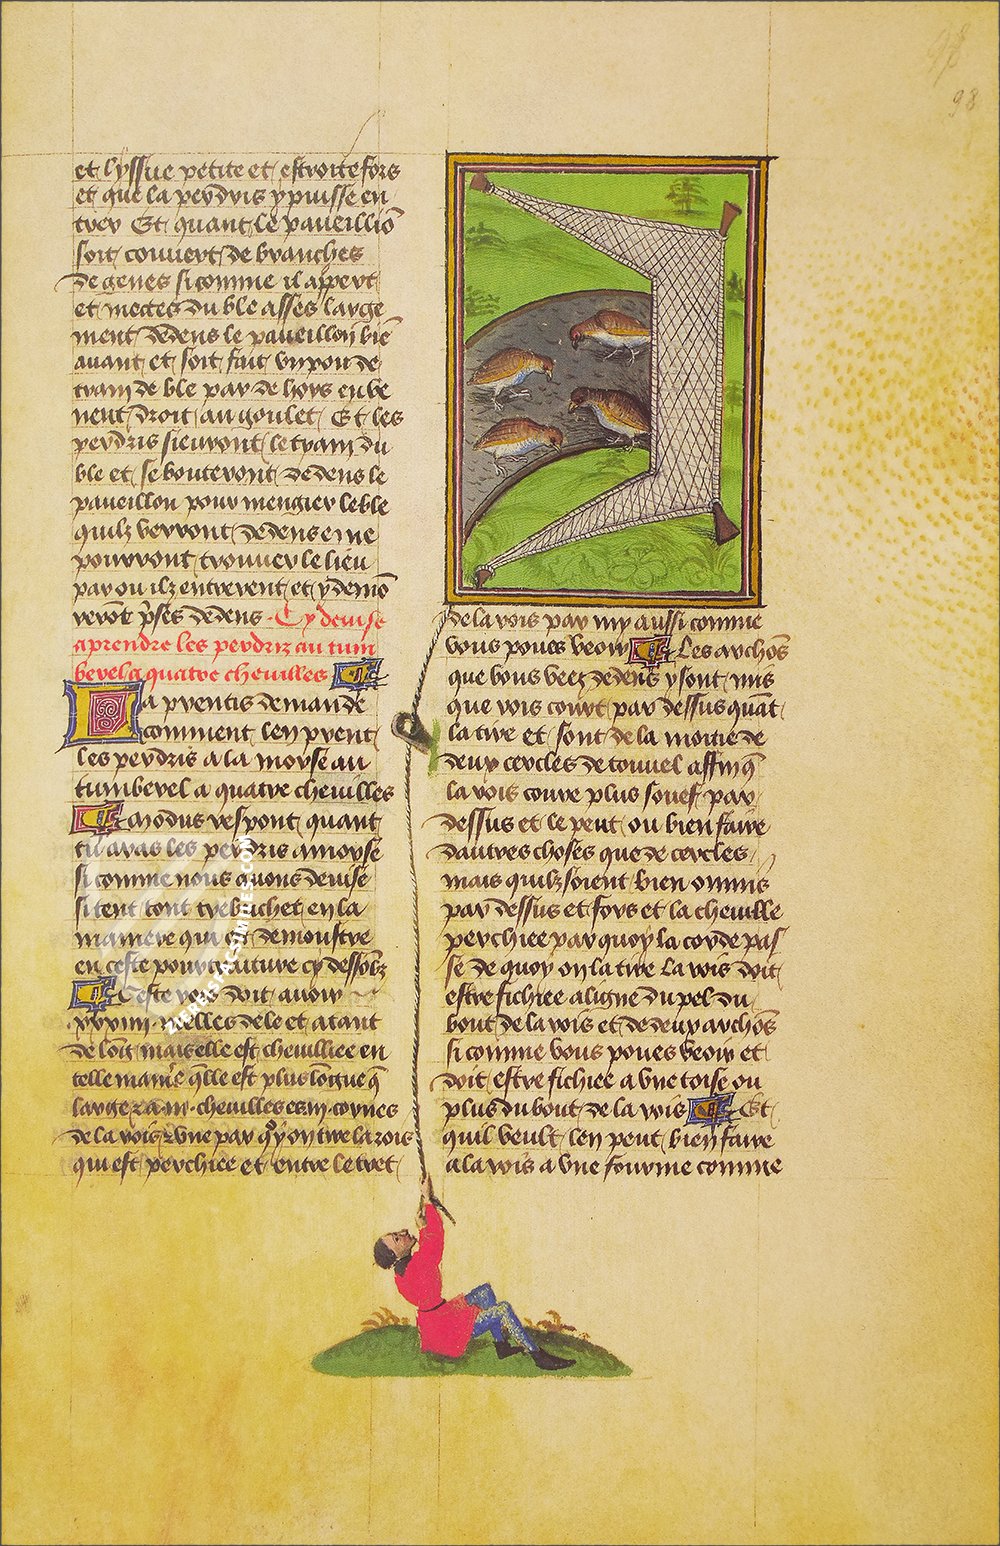 98
98
et lyssue petite et estroite fors
et que la perdris y puisse en
trer Et quant le paueillio᷑
soit couuert de branches
de genes si comme il appert
et mectes du ble asses large
ment dedens le paueillon bie᷑
auant et soit fait vn pou de
train de ble par de hors en ve
nent droit au goulet Et les
perdris sieuront le train du
ble et se bouteront dedens le
paueillon pour mengier le ble
quilz verront dedens e ne
pourront trouuer le lieu
par ou ilz entrerent et y demo᷑
rero᷑t p̃ses dedens · Cy deuise
aprendre les perdriz au tum
berel a quatre cheuilles
La prentis demande
comment len prent
les perdris a la moyse au
tumberel a quatre cheuilles
Modus respont quant
tu aras les perdris amoyse
si comme nous auons deuise
si tent tont trebuchet en la
maniere qui est demoustre
en ceste pourtraiture cy dessoubz
Ceste rois doit auoir
xxxiiii · melles de le et atant
de lo᷑c mais elle est cheuilliee en
telle manie᷑ q̃lle est plus lo᷑gue q̃
large · cheuilles es corges
de la rois vne par quoy on tire la rois
qui est perchiee et entre le tret
de la rois par my aussi comme
vous poues veoir Les archo᷑s
que vous vees dedens y sont mis
que rois court par dessus qua᷑t
la tire et sont de la moitie de
deux cercles de tonnel affin q̃
la rois coure plus souef par
dessus et le peut ou bien faire
dautres choses que de cercles
mais quilz soient bien omnis
par dessus et fors et la cheuille
perchiee par quoy la corde pas
se de quoy on la tire La rois doit
estre fichiee a ligne du pel du
bout de la rois et de deux archo᷑s
si comme vous poues veoir et
doit estre fichiee a vne toise ou
plus du bout de la rois Et
quil veult len peut bien faire
a la rois a vne fourme comme